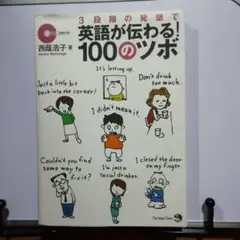 3段階の発想で
英語が伝わる!
100のツボ
西蔭浩子 著
It's letting up.
Just a little bit
back into the corner!
Don't drink
too much.
I didn't mean it.
Couldn't you find
some way to
fix it?
I'm just a
social drinker.
I closed the door
on my finger.
The Japan Times